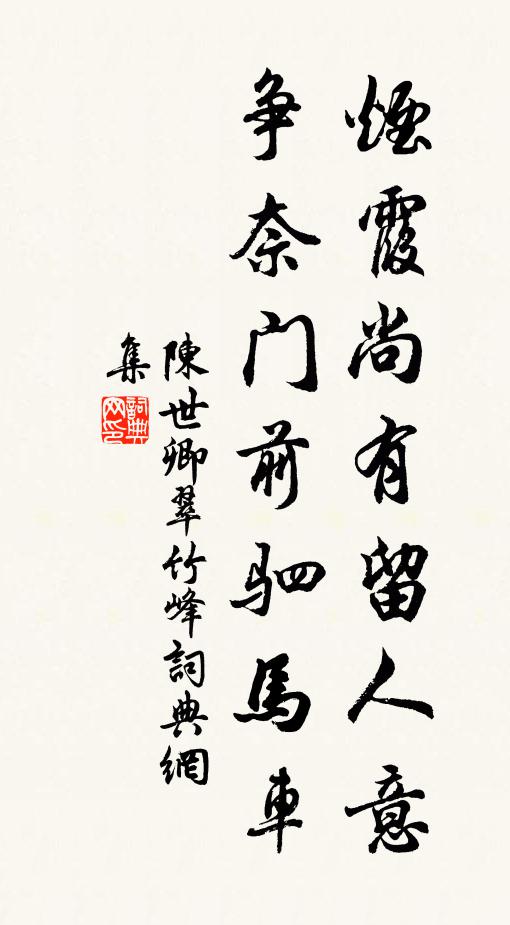 煙霞尚有留人意
争奈门前驷馬車
陳世卿翠竹峰詞典網
集
詞典
网印